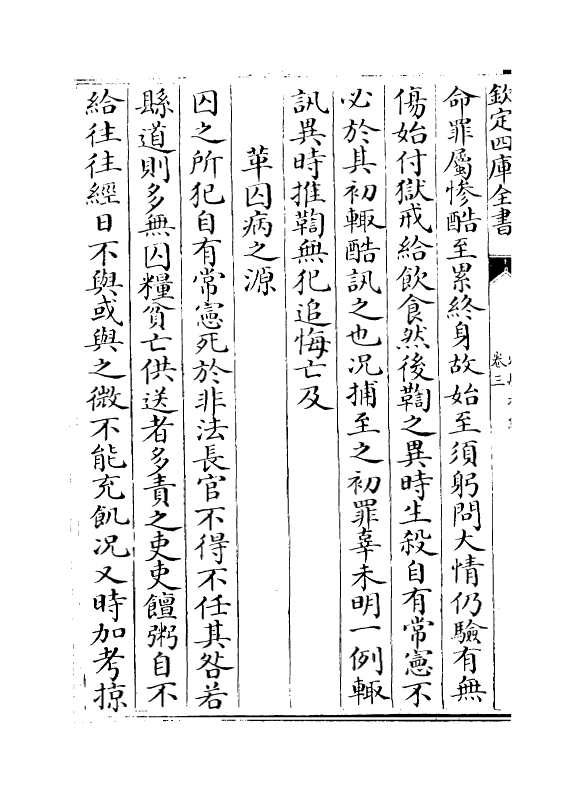 欽定四庫全書
卷三
命罪屬慘酷至累終身故始至須躬問大情仍驗有無
傷始付獄戒給飲食然後鞫之異時生殺自有常憲不
必於其初輙酷訊之也况捕至之初罪辜未明一例輙
訊異時推鞫無犯追悔亡及
革囚病之源
囚之所犯自有常憲死於非法長官不得不任其咎若
縣道則多無囚糧貧亡供送者多責之吏吏饘粥自不
給往往經日不與或與之微不能充飢况又時加考掠